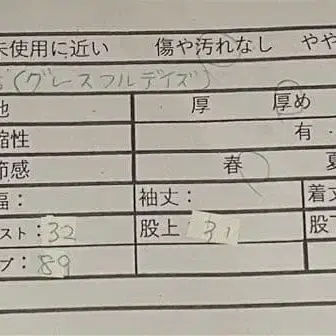 未使用に近い 傷や汚れなし やや
(グレースフルデイズ)
地 厚 厚め
縮性 有・
節感 春 夏
幅： 袖丈： 着丈
スト：32 股上：31 股
プ：89